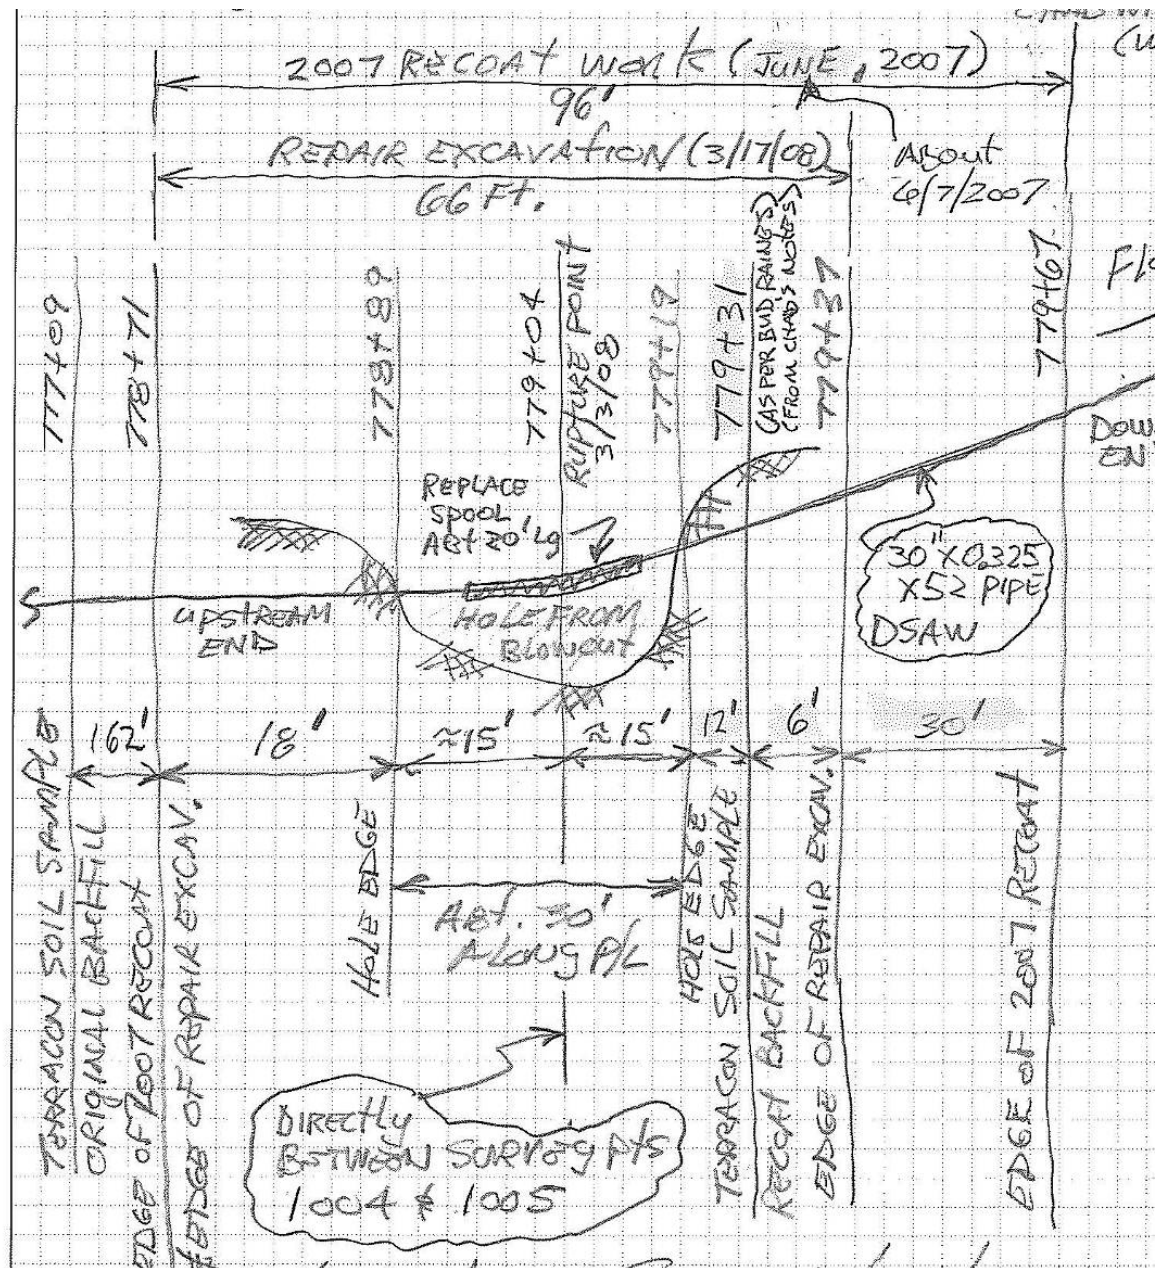 2007 RECOAT WORK (JUNE, 2007)
96'
REPAIR EXCAVATION (3/17/08)
66 Ft.
ABOUT
6/7/2007
777+09
778+71
778+89
779+04
RUPTURE POINT
3/3/08
779+19
779+31
(AS PER BUD RAINES)
(FROM CHAD'S NOTES)
779+37
779+67
REPLACE
SPOOL
ABT 20' Lg
UPSTREAM
END
HOLE FROM
BLOWOUT
30" X 0.325
X 52 PIPE
DSAW
162'
18'
≈15'
≈15'
12'
6'
30'
TERRACON SOIL SAMPLE
ORIGINAL BACKFILL
EDGE OF 2007 RECOAT
& EDGE OF REPAIR EXCAV.
HOLE EDGE
ABT. 30'
ALONG P/L
HOLE EDGE
TERRACON SOIL SAMPLE
RECOAT BACKFILL
EDGE OF REPAIR EXCAV.
EDGE OF 2007 RECOAT
DIRECTLY
BETWEEN SURVEY PTS
1004 & 1005